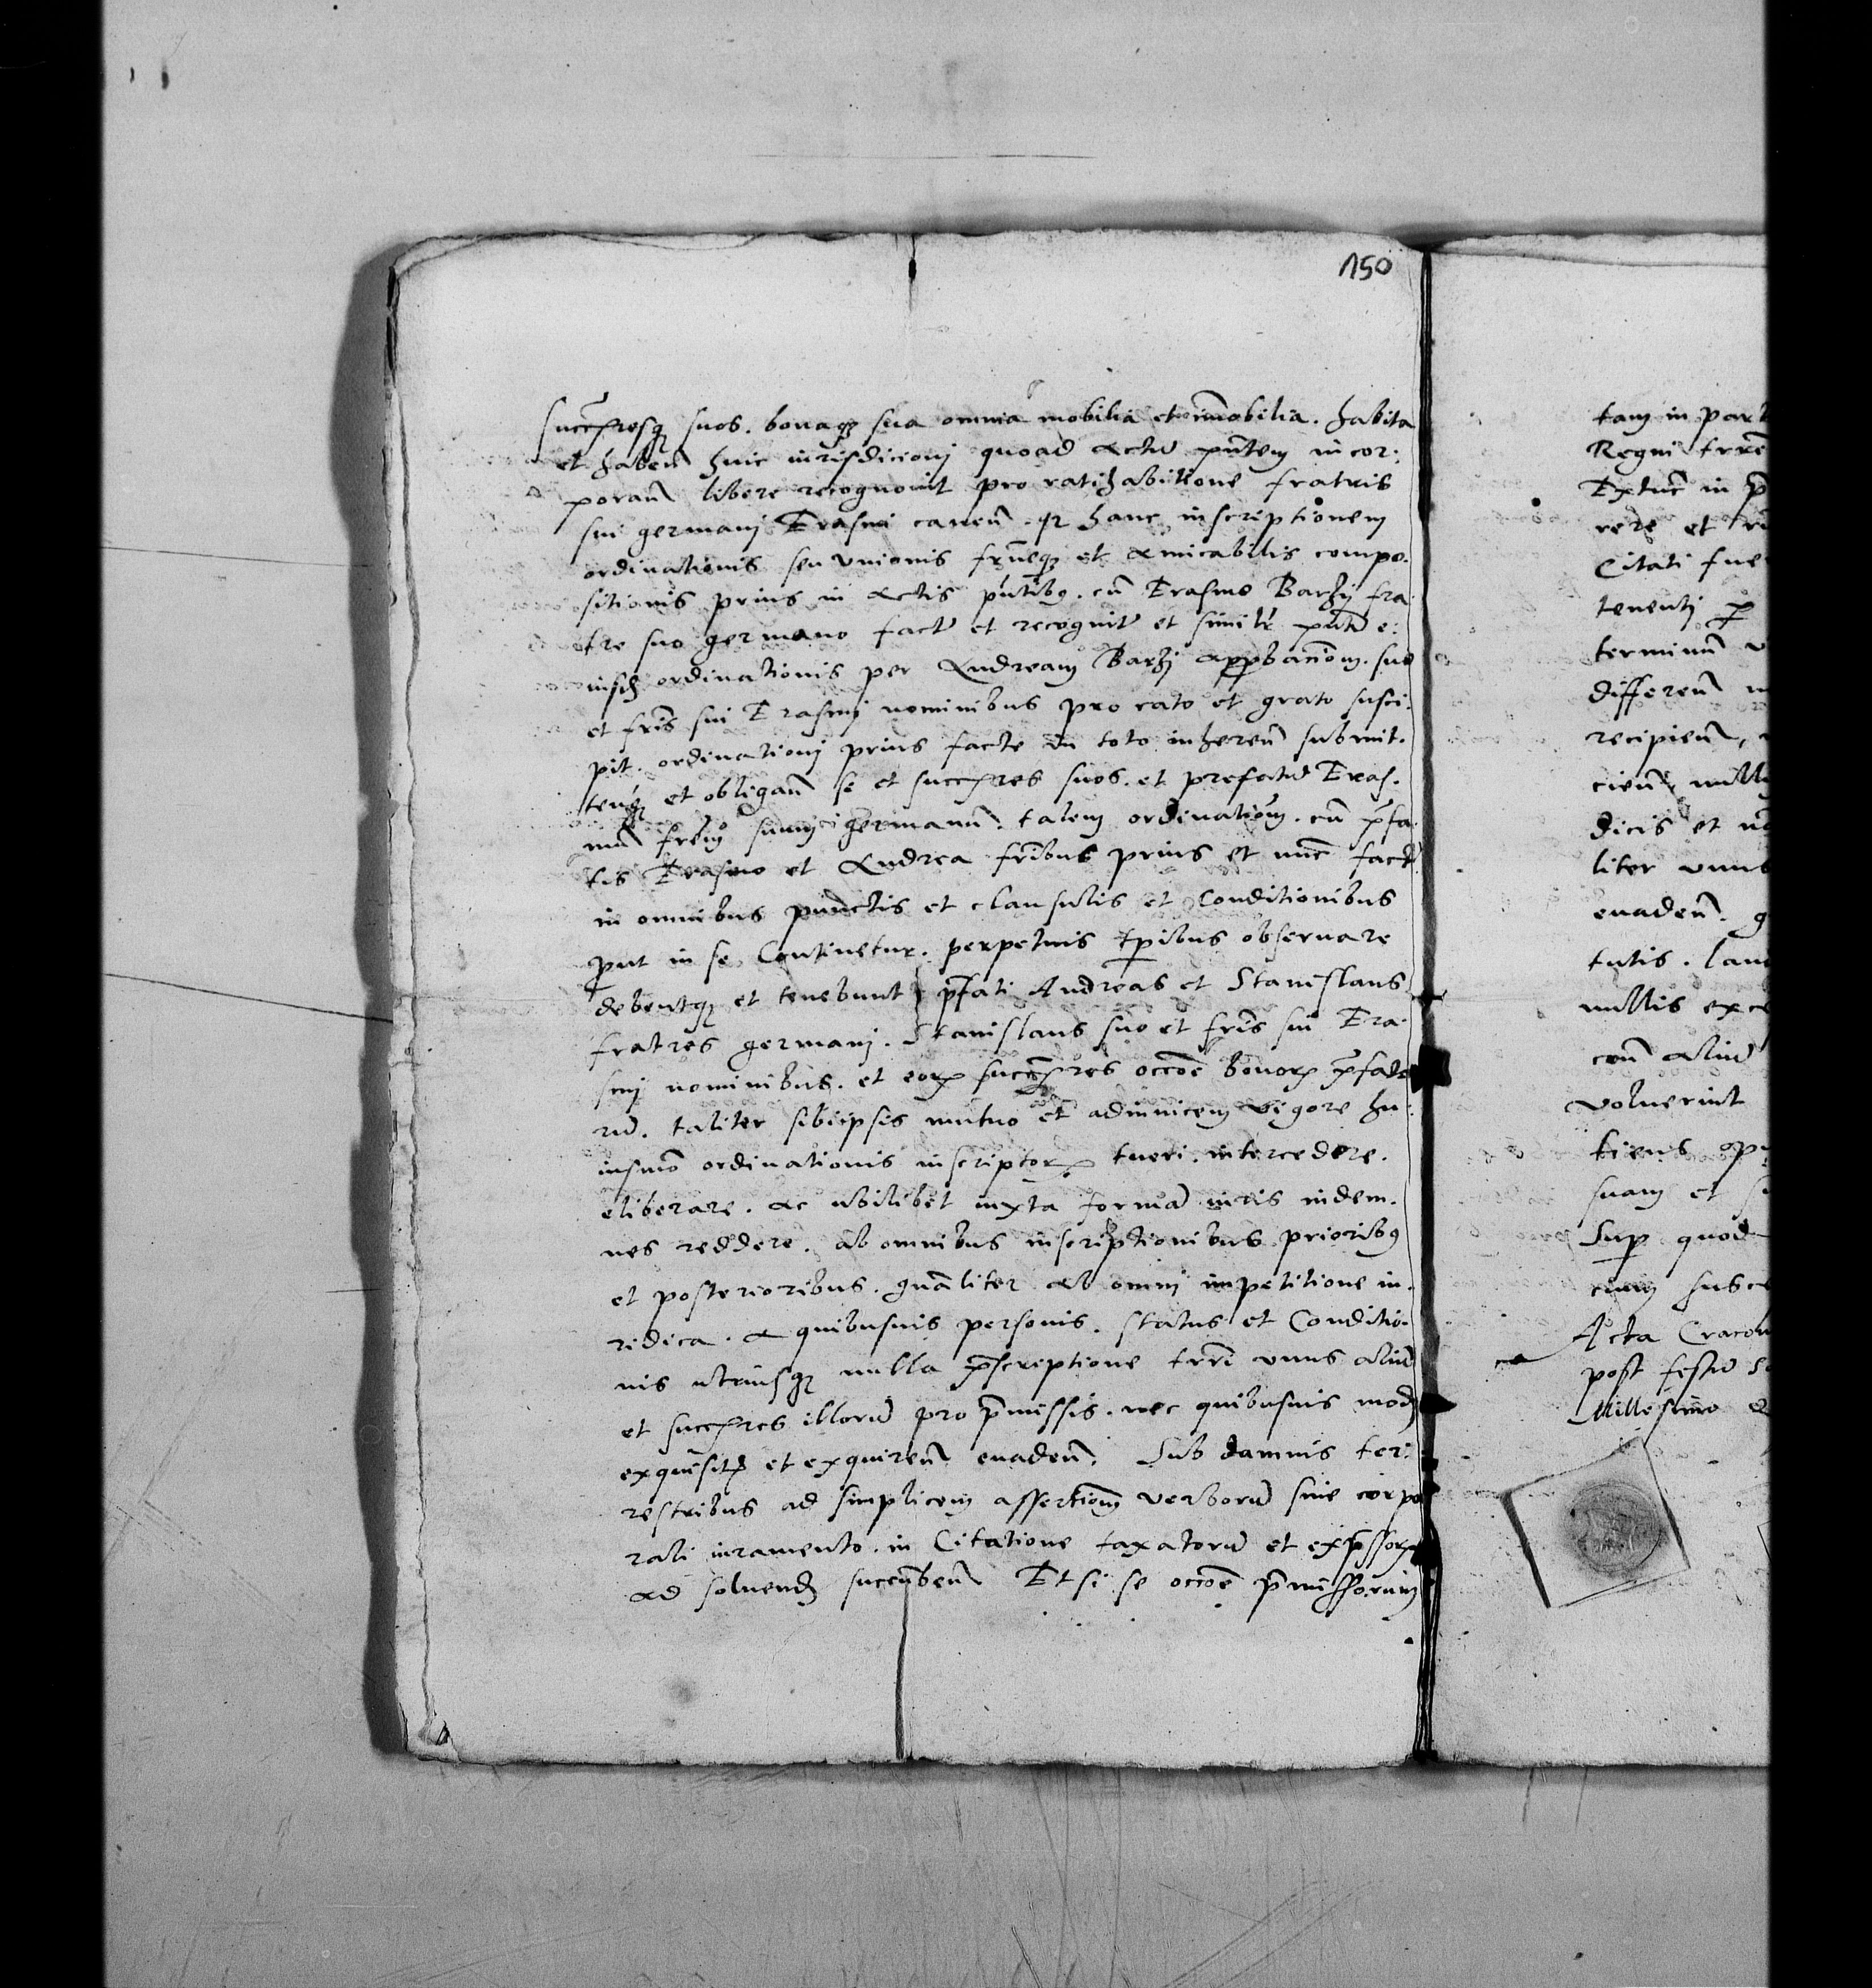 150
succ̃resq₃ suos. bonaq₃ sua omnia mobilia et im̃obilia. habita
et haben̄ huic iurisdicionj quoad actū pñtem incor:
poran̄ libere recognouit pro ratihabitione fratris
sui germanj Erasmi caven̄. qz hanc inscriptionem
ordinationis seu vnionis fr̃neq₃ et amicabilis compo.
sitionis prius in actis pñtibꝯ. cũ Erasmo Barzȷ fra
tre suo germano fact̄ et recognit̄ et similr̃ pñt̄ e:
iusd ordinationis per Andream Barzj appbãciom. suo
et fr̃is sui Erasmj nominibus pro rato et grato susci.
pit. ordinationj prius facte in toto inheren̄ submit.
ten̄q₃ et obligan̄ se et succ̃res suos. et prefatū Eras.
mū fr̃em suum germanū. talem ordinatiom̃. cū p̃fa
tis Erasmo et Andrea fr̃ibus prius et nũc fact̄
in omnibus punctis et clausulis et Conditionibus
ꝓut in se Continetur. perpetuis tp̃ribus obseruare
debentq₃ et tenebunt p̃fati Andreas et Stanislaus
fratres germanj. Stanislaus suo et fr̃is sui Era.
smj nominibus. et eorꝝ succ̃res occõe bonorꝝ p̃fato
rū. taliter sibiipsis mutuo et adinuicem vigore hu:
iusmõ ordinationis inscriptorꝝ tueri. intercedere.
eliberare. ac vbilibet iuxta formā iuris indem.
nes reddere. ab omnibus inscriptionibus prioribꝯ
et posterioribus. gñaliter ab omnj impetitione iu.
ridica. a quibusuis personis. status et Conditio.
nis vtriusq₃ nulla p̃scriptione trr̃i vnus aliū
et succ̃res illorū pro p̃missis. nec quibusuis mod
exquisit̄ et exquiren̄ euaden̄. Sub damnis ter:
restribus ad simplicem assertiom̃ verborū sine corpo
rali iuramento. in Citatione taxatorū et exp̃ssorꝝ
ad soluend succũben̄ Et si se occõe p̃missorum
tam in par
Regni trrẽ
Extũc in p̃
rere et
Citati fue
tenentj
terminū
differen̄
recipien̄,
cien̄
dicis et
liter vnus
euaden̄.
tutis. lau
nullis exce
aliū
voluerint
tiens
suam et
Sup quod
susce
Acta Cracou
post festū
Millesimo